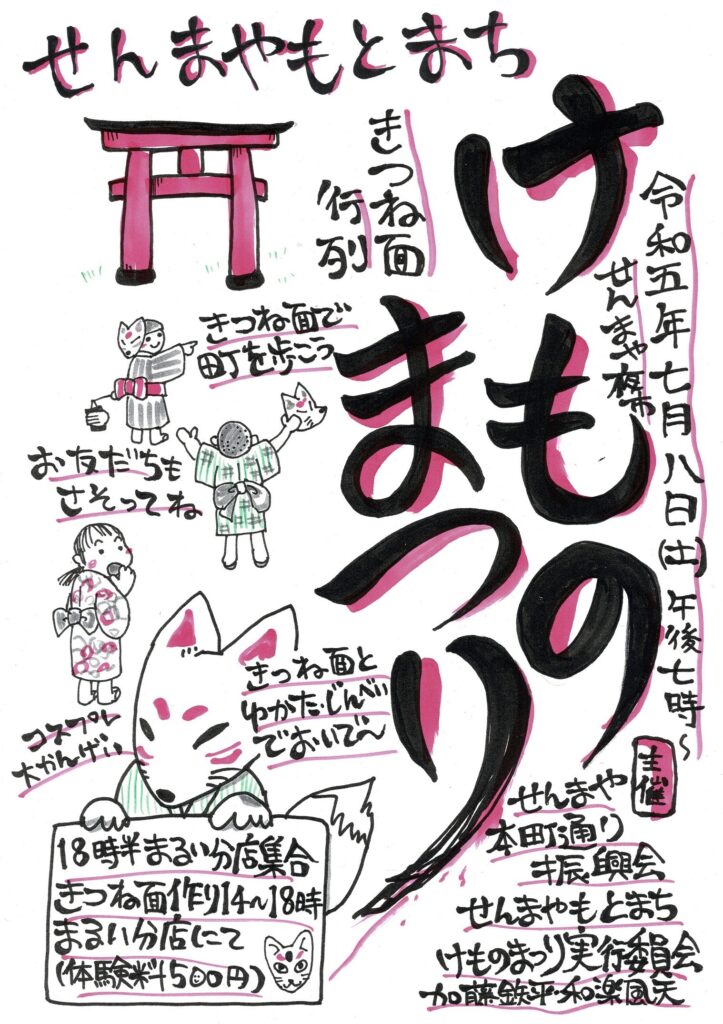 せんまやもとまち
けものまつり
令和五年七月八日(土)午後七時〜
せんまや夜市
きつね面
行列
きつね面で
町を歩こう
お友だちも
さそってね
きつね面と
ゆかた・じんべい
でおいで〜
コスプレ
大かんげい
18時半まるい分店集合
きつね面作り14〜18時
まるい分店にて
(体験料500円)
主催
せんまや
本町通り
振興会
せんまやもとまち
けものまつり実行委員会
加藤鉄平・和楽風天